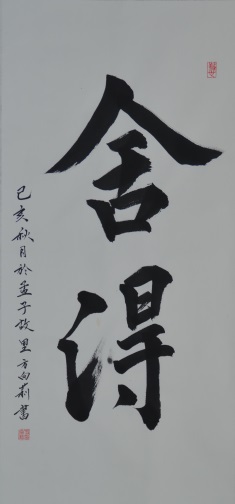 舍得
己亥秋月於孟子故里方向莉書